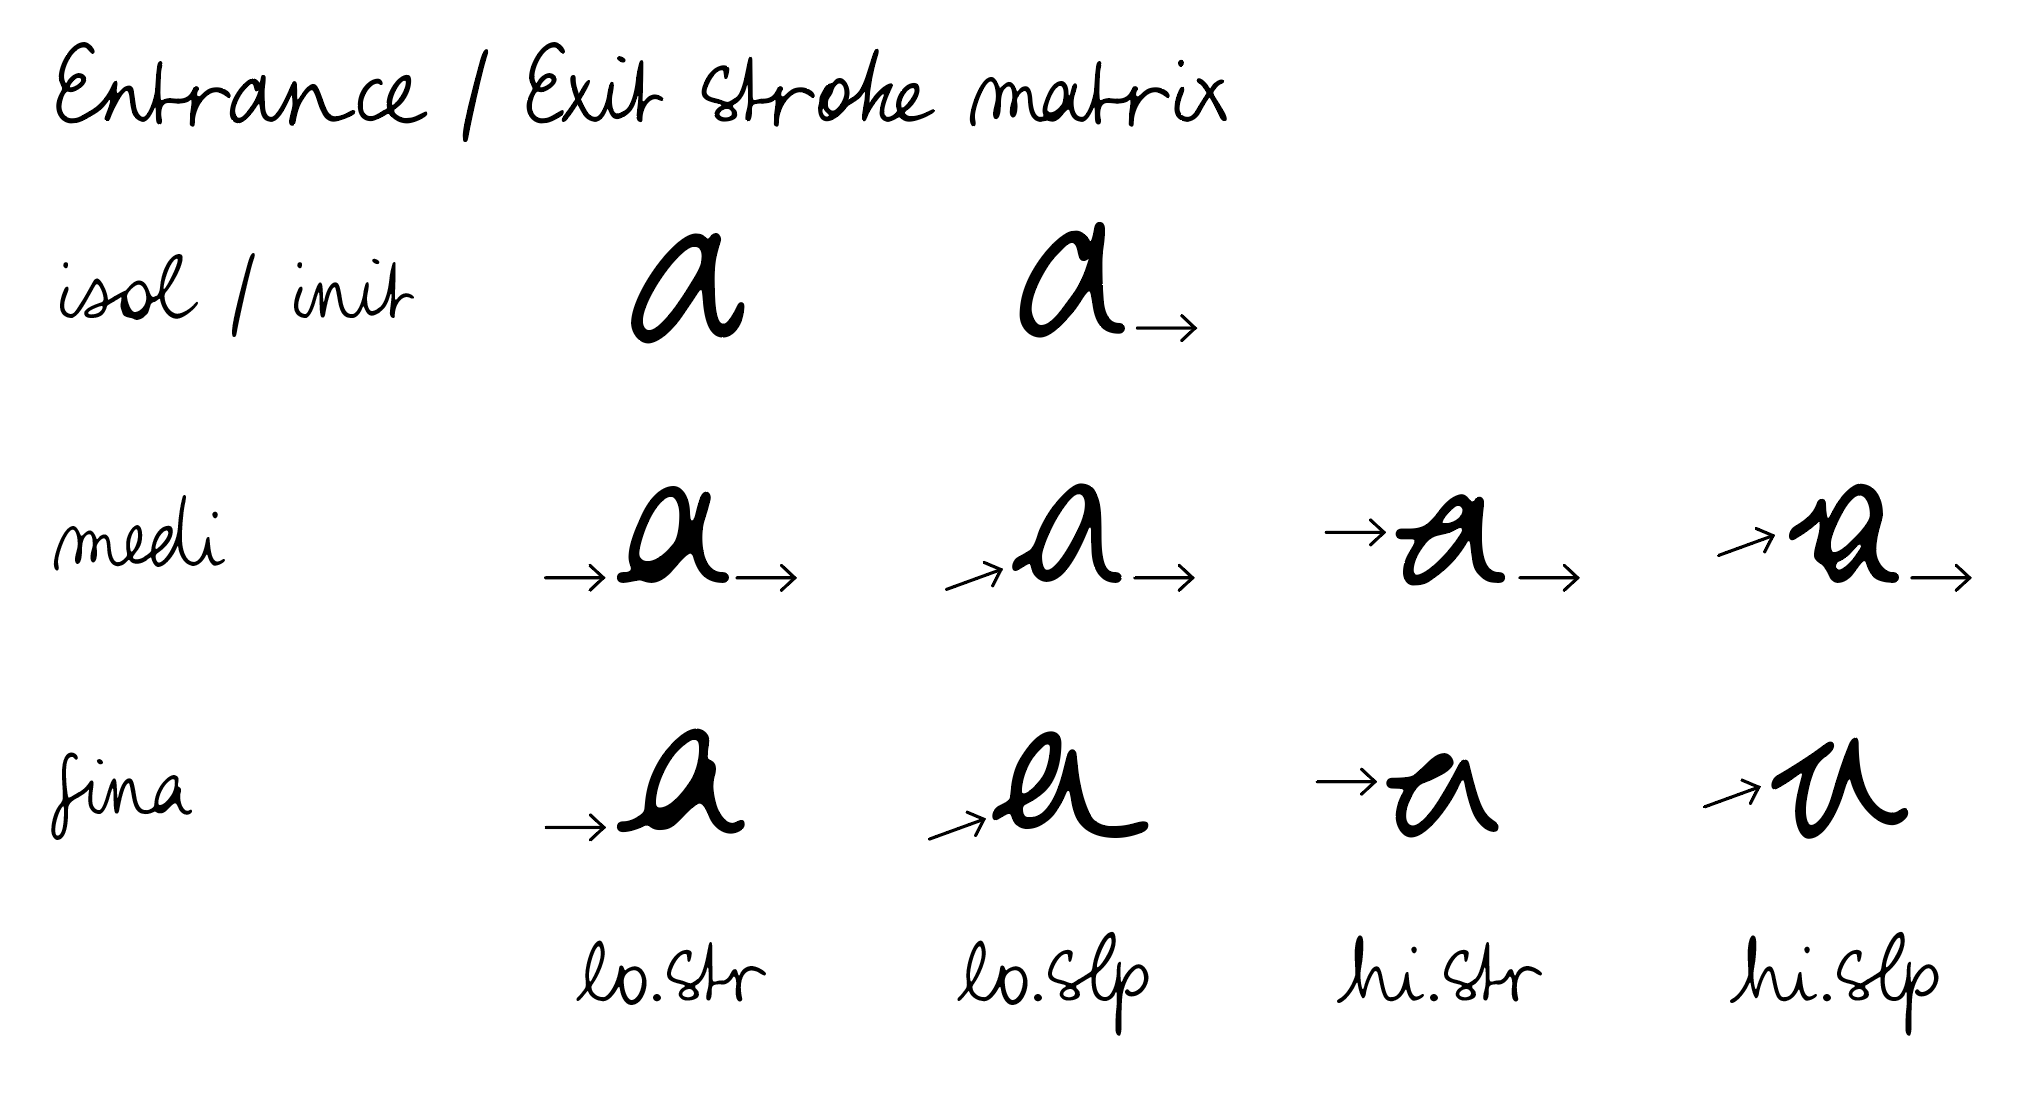 Entrance / Exit stroke matrix
isol / init a a→
medi →a→ →a→ →a→ →a→
fina →a →a →a →a
lo.str lo.slp hi.str hi.slp